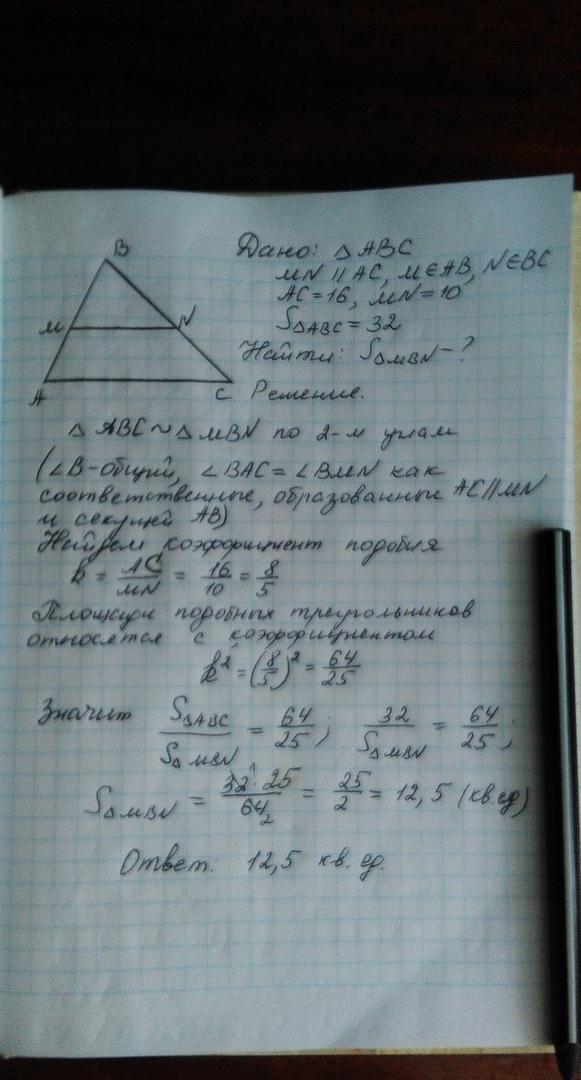 Дано: △ABC
MN || AC, M∈AB, N∈BC
AC=16, MN=10
S△ABC = 32
Найти: S△MBN - ?
B
M
N
A
C
Решение.
△ ABC ~ △ MBN по 2-м углам
(∠B-общий, ∠BAC = ∠BMN как
соответственные, образованные AC||MN
и секущей AB)
Найдем коэффициент подобия
k = AC/MN = 16/10 = 8/5
Площади подобных треугольников
относятся с коэффициентом
k² = (8/5)² = 64/25
Значит S△ABC/S△MBN = 64/25; 32/S△MBN = 64/25;
S△MBN = 32¹·25/64₂ = 25/2 = 12,5 (кв.ед)
Ответ: 12,5 кв. ед.